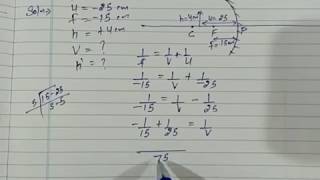 Soln⇒ u = -25 cm
f = -15 cm
h = +4 cm
v = ?
h' = ?
h=4cm u=25
C F P
f=15cm
1/f = 1/v + 1/u
1/-15 = 1/v + 1/-25
1/-15 = 1/v - 1/25
-1/15 + 1/25 = 1/v
75
5 | 15-25
3-5